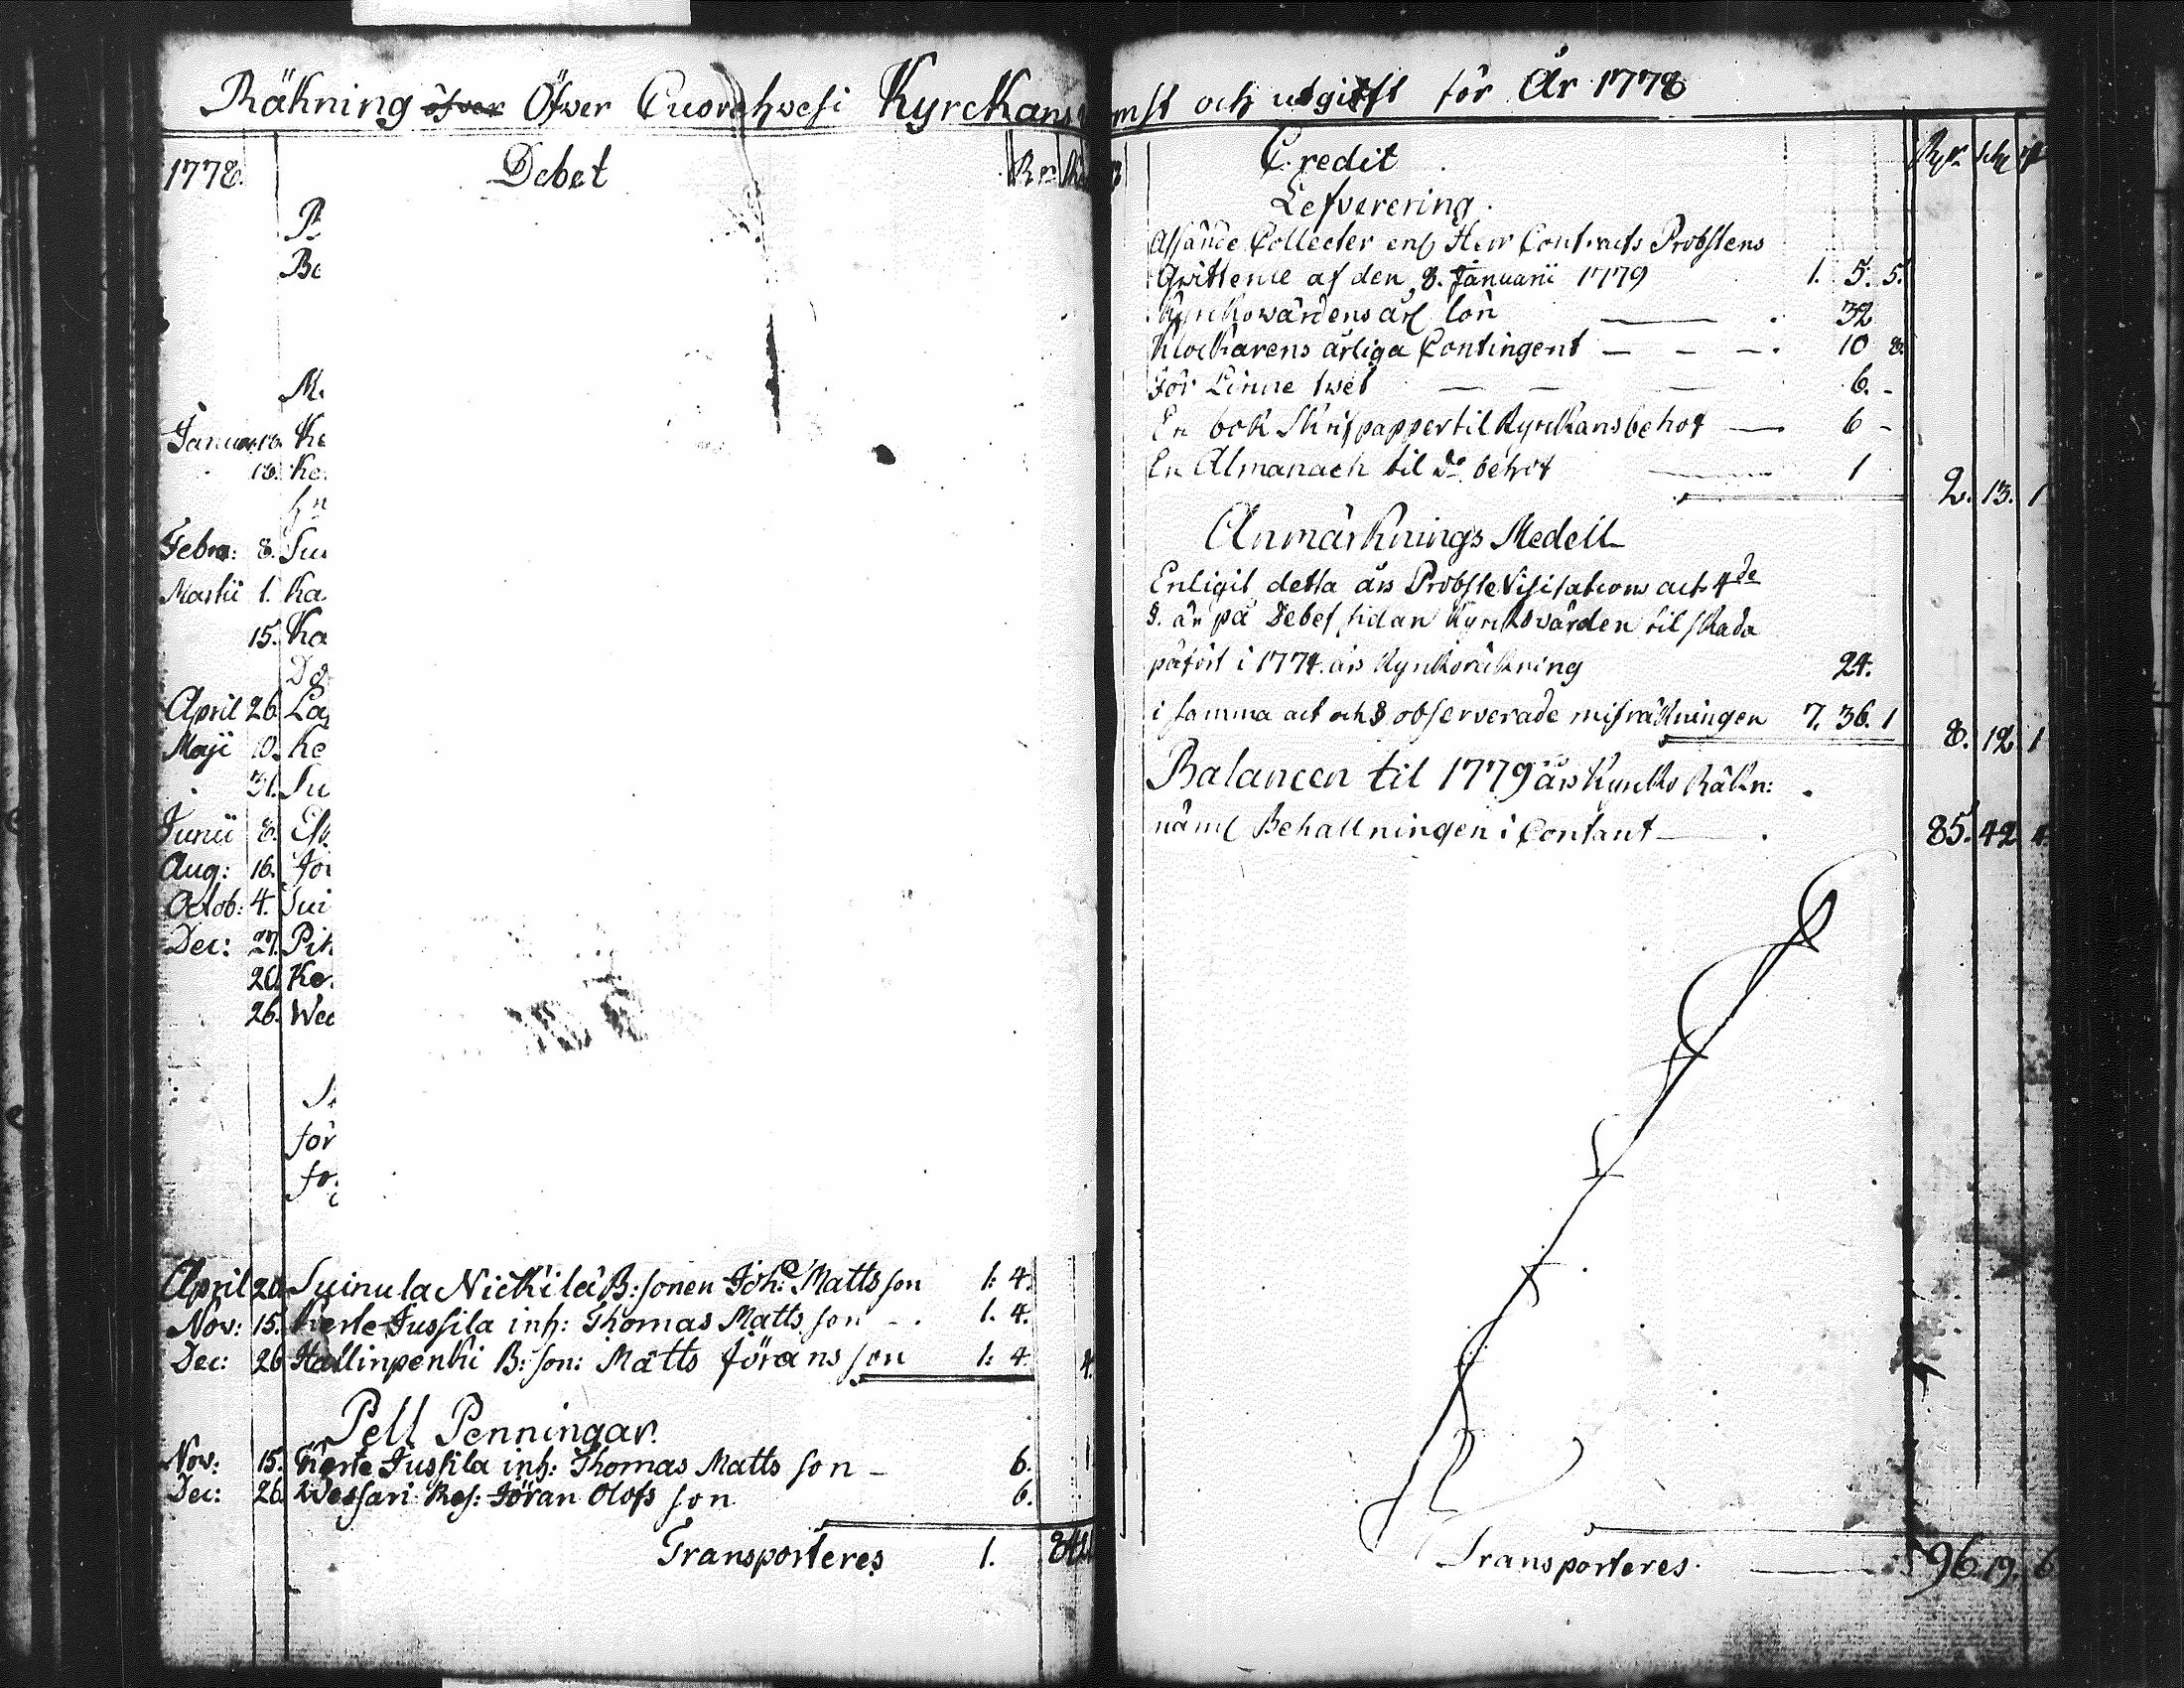 Räkning öfver Öfwer Cuorehwesi Kyrckans
1778. Debet Rr
Januar. 18. Ke
18. Ke
Febr: 8. Sui
Martii 1. Ka
15. Ka
April 26 La
Maji 10. Ke
31. Su
Junii 8.
Aug: 16. Jör
Octob: 4. Sui
Dec: 27. Pih
26. Ke
26. Wee
för
April 20 Suinula Nickilä B:sonen Joh: Mattsson 1: 4.
Nov: 15. Kerte Jussila inh: Thomas Matts son 1. 4.
Dec: 26 Hallinpenki B: son: Matts Jöransson 1: 4. 4.
Pell Penningar.
Nov: 15. Kerte Jussila inh: Thomas Matts son 6.
Dec: 26. Wessari Res: Jöran Olofs son 6.
Transporteres 1.
mst och utgift för År 1778
Credit
Lefverering.
Collecter enl Herr Contracts Probstens
Qvittence af den 8. Januarii 1779 1. 5. 5.
Kyrckowärdens årl lön 32
Klockarens årliga Contingent 10 8.
För Linne twet 6. -
En bok Skrifpapper til Kyrckans behof 6 -
En Almanach til do behof 1
2. 13. 1
Anmärknings Medell
Enligit detta års Probste Visitations act 4de
§. är på Debet sidan Kyrckowärden til skada
påfört i 1774 års Kyrkoräkning 24.
i samma act och § observerade misräkningen 7. 36. 1
8. 12. 1
Balancen til 1779 års Kyrcko Räkn:
näml Behallningen i Contant 85. 42. 4.
Transporteres. 96. 19. 6